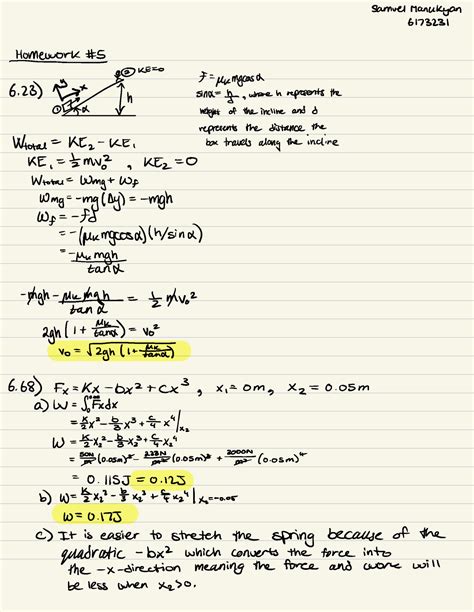 Samvel Manukyan
6173231
Homework #5
6.23) ① ② KE=0 h α x y
f = μₖmgcosα
sinα = h/d, where h represents the
height of the incline and d
represents the distance the
box travels along the incline
Wtotal = KE₂ - KE₁
KE₁ = ½mv₀², KE₂ = 0
Wtotal = Wmg + Wf
Wmg = -mg(Δy) = -mgh
Wf = -fd
= -(μₖmgcosα)(h/sinα)
= -μₖmgh/tanα
-mgh - μₖmgh/tanα = ½mv₀²
2gh(1 + μₖ/tanα) = v₀²
v₀ = √(2gh(1 + μₖ/tanα))
6.68) Fx = Kx - bx² + cx³, x₁ = 0m, x₂ = 0.05m
a) W = ∫Fxdx
= k/2 x² - b/3 x³ + c/4 x⁴ |x₂
W = k/2 x₂² - b/3 x₂³ + c/4 x₂⁴
(0.05m)² - (0.05m)³ + (0.05m)⁴
= 0.115J = 0.12J
b) W = k/2 x₂² - b/3 x₂³ + c/4 x₂⁴ | x₂=-0.05
W = 0.17J
c) It is easier to stretch the spring because of the
quadratic -bx² which converts the force into
the -x-direction meaning the force and work will
be less when x₂>0.